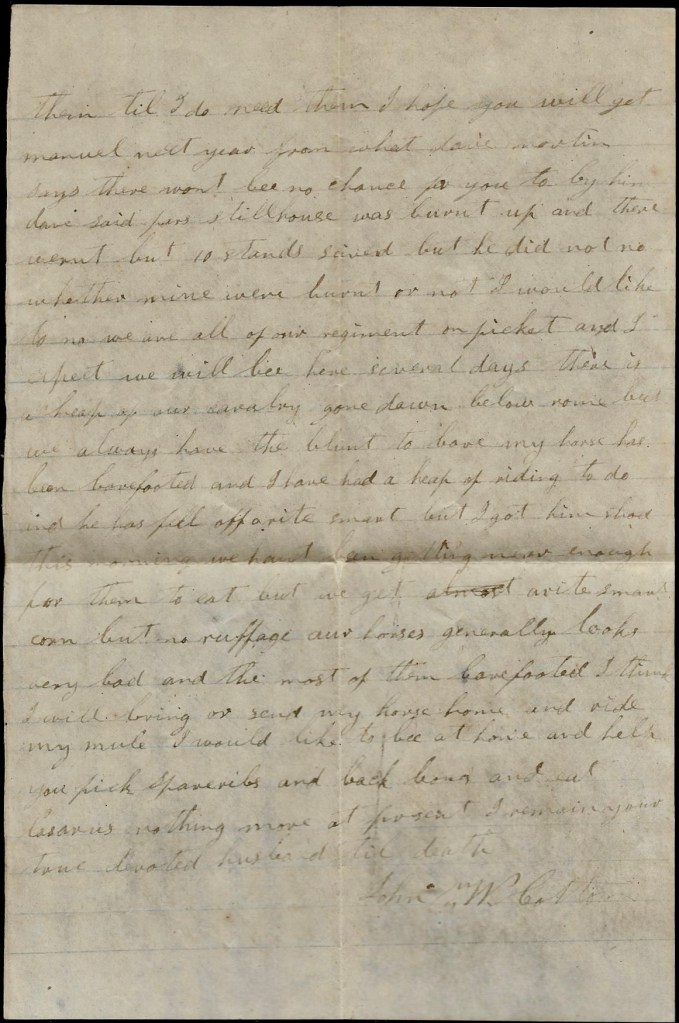 them til I do need them I hope you will get
manuel next year from what dave
says there wont bee no chance for you to by him
dave said pars stillhouse was burnt up and there
wernt but 10 stands saived but he did not no
whether mine were burnt or not I would like
to no we are all of our regiment on picket and I
expect we will bee here several days there is
a heap of our cavalry gone down below rome but
we always have the blunt to bare my horse has
been barefooted and I have had a heap of riding to do
and he has fell off arite smart but I got him shod
this morning we hant ben getting near enough
for them to eat but we get almost arite smart
corn but no ruffage our horses generally looks
very bad and the most of them barefooted I think
I will bring or send my horse home and ride
my mule I would like to bee at home and help
you pick spareribs and back bones and eat
nothing more at present I remain your
true devoted husband til death
John W